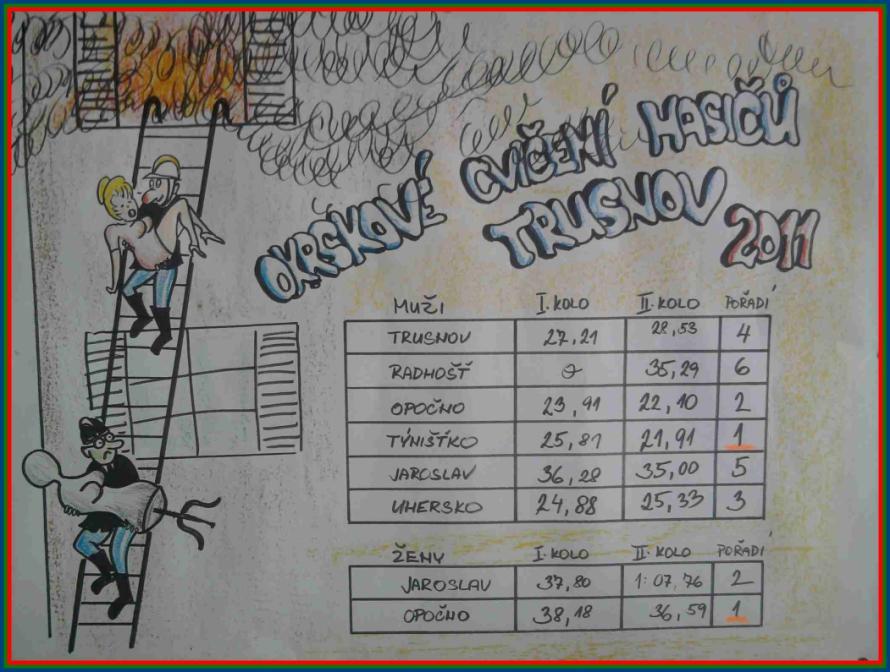 OKRSKOVÉ CVIČENÍ HASIČŮ
TRUSNOV 2011
MUŽI I. KOLO II. KOLO POŘADÍ
TRUSNOV 27,21 28,53 4
RADHOŠŤ 0 35,29 6
OPOČNO 23,91 22,10 2
TÝNIŠŤKO 25,81 21,91 1
JAROSLAV 36,28 35,00 5
UHERSKO 24,88 25,33 3
ŽENY I. KOLO II. KOLO POŘADÍ
JAROSLAV 37,80 1:07,76 2
OPOČNO 38,18 36,59 1